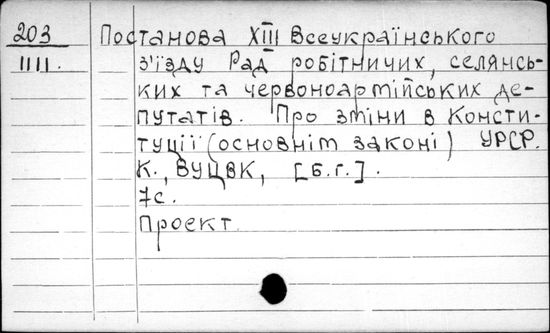 203 Постанова XIII Всеукраїнського
1111. з'їзду Рад робітничих, селянсь-
ких та червоноармійських де-
путатів. Про зміни в Консти-
туції (основнім законі) УРСР.
К., ВУЦВК, [б.г.].
7с.
Проект.